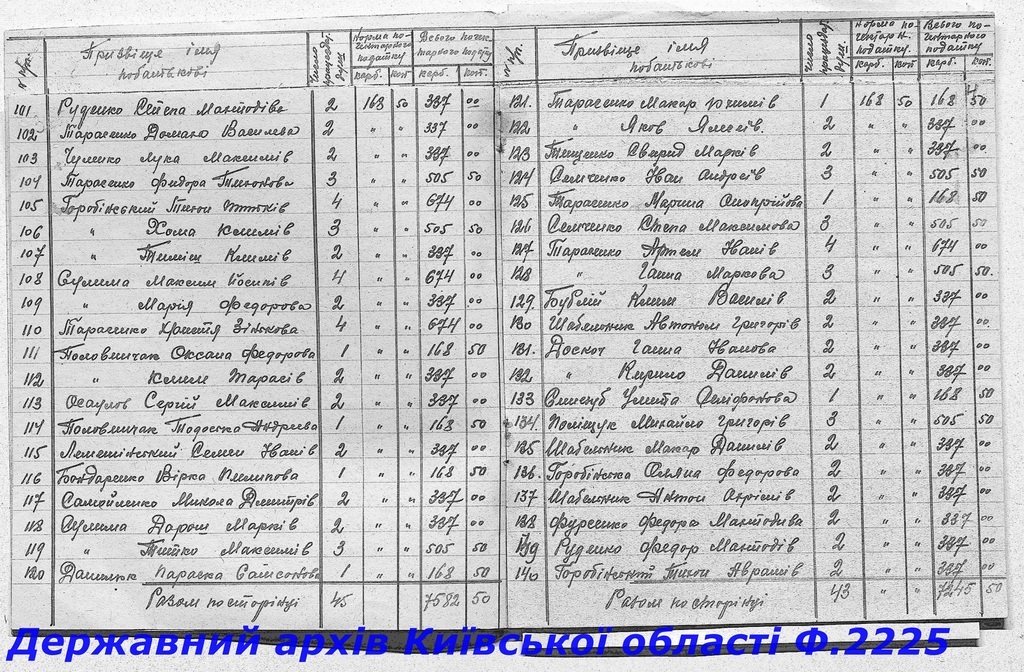 № п/п. Прізвище імя побатькові Число працездат. душ Норма по-гектарного податку карб. коп Всього погек-тарного подат. карб. коп.
101. Руденко Степа Мантодіва 2 168 50 337 00
102 Тарасенко Домаха Василева 2 " " 337 00
103 Чумако Лука Максимів 2 " " 337 00
104 Тарасенко Федора Тихонова 3 " " 505 50
105 Горобінський Тихон 4 " " 674 00
106 " Хома Климів 3 " " 505 50
107 " Климів 2 " " 337 00
108 Сулима Максим Йосипів 4 " " 674 00
109 " Марія Федорова 2 " " 337 00
110 Тарасенко Христя Зінькова 4 " " 674 00
111 Половинчак Оксана Федорова 1 " " 168 50
112 " Клим Тарасів 2 " " 337 00
113 Осаулов Сергій Максимів 2 " " 337 00
114 Половинчак Тодоска Андреева 1 " " 168 50
115 Лемешінський Семен Іванів 2 " " 337 00
116 Бондаренко Вірка Пилипова 1 " " 168 50
117 Самойленко Микола Дмитрів 2 " " 337 00
118 Сулима Дарош Марків 2 " " 337 00
119 " Тишко Максимів 3 " " 505 50
120 Данилюк Параска Самсонова 1 " " 168 50
Разом по сторінці 45 7582 50
№ п/п. Прізвище імя побатькові Число працездат. душ Норма по-гектарн. податку. карб. коп Всього по-гектарного податку карб. коп.
121. Тарасенко Макар Юхимів 1 168 50 168 50
122 " Яков 2 " " 337 00
123 Тищенко Свирид Марків 2 " " 337 00
124 Семченко Іван Андреів 3 " " 505 50
125 Тарасенко Марина Оноприйова 1 " " 168 50
126 Семченко Степа Максимова 3 " " 505 50
127 Тарасенко Артем Іванів 4 " " 674 00
128 " Ганна Маркова 3 " " 505 50.
129. Бублій Клим Василів 2 " " 337 00
130 Шабельник Автоном Григорів 2 " " 337 00.
131. Доскоч Ганна Іванова 2 " " 337 00
132 " Кирило Данилів 2 " " 337 00
133 Улита 1 " " 168 50
134. Поліщук Михайло Григорів 3 " " 505 50
135 Шабельник Макар Данилів 2 " " 337 00
136. Горобінська Оляна Федорова 2 " " 337 00
137 Шабельник Антон 2 " " 337 00
138 Фурсенко Федора Мантодива 2 " " 337 00
139 Руденко Федор Мантодів 2 " " 337 00
140 Горобінський Тихон Аврамів 2 " " 337 00
Разом по сторінці 43 " " 7245 50
Державний архів Київської області Ф.2225